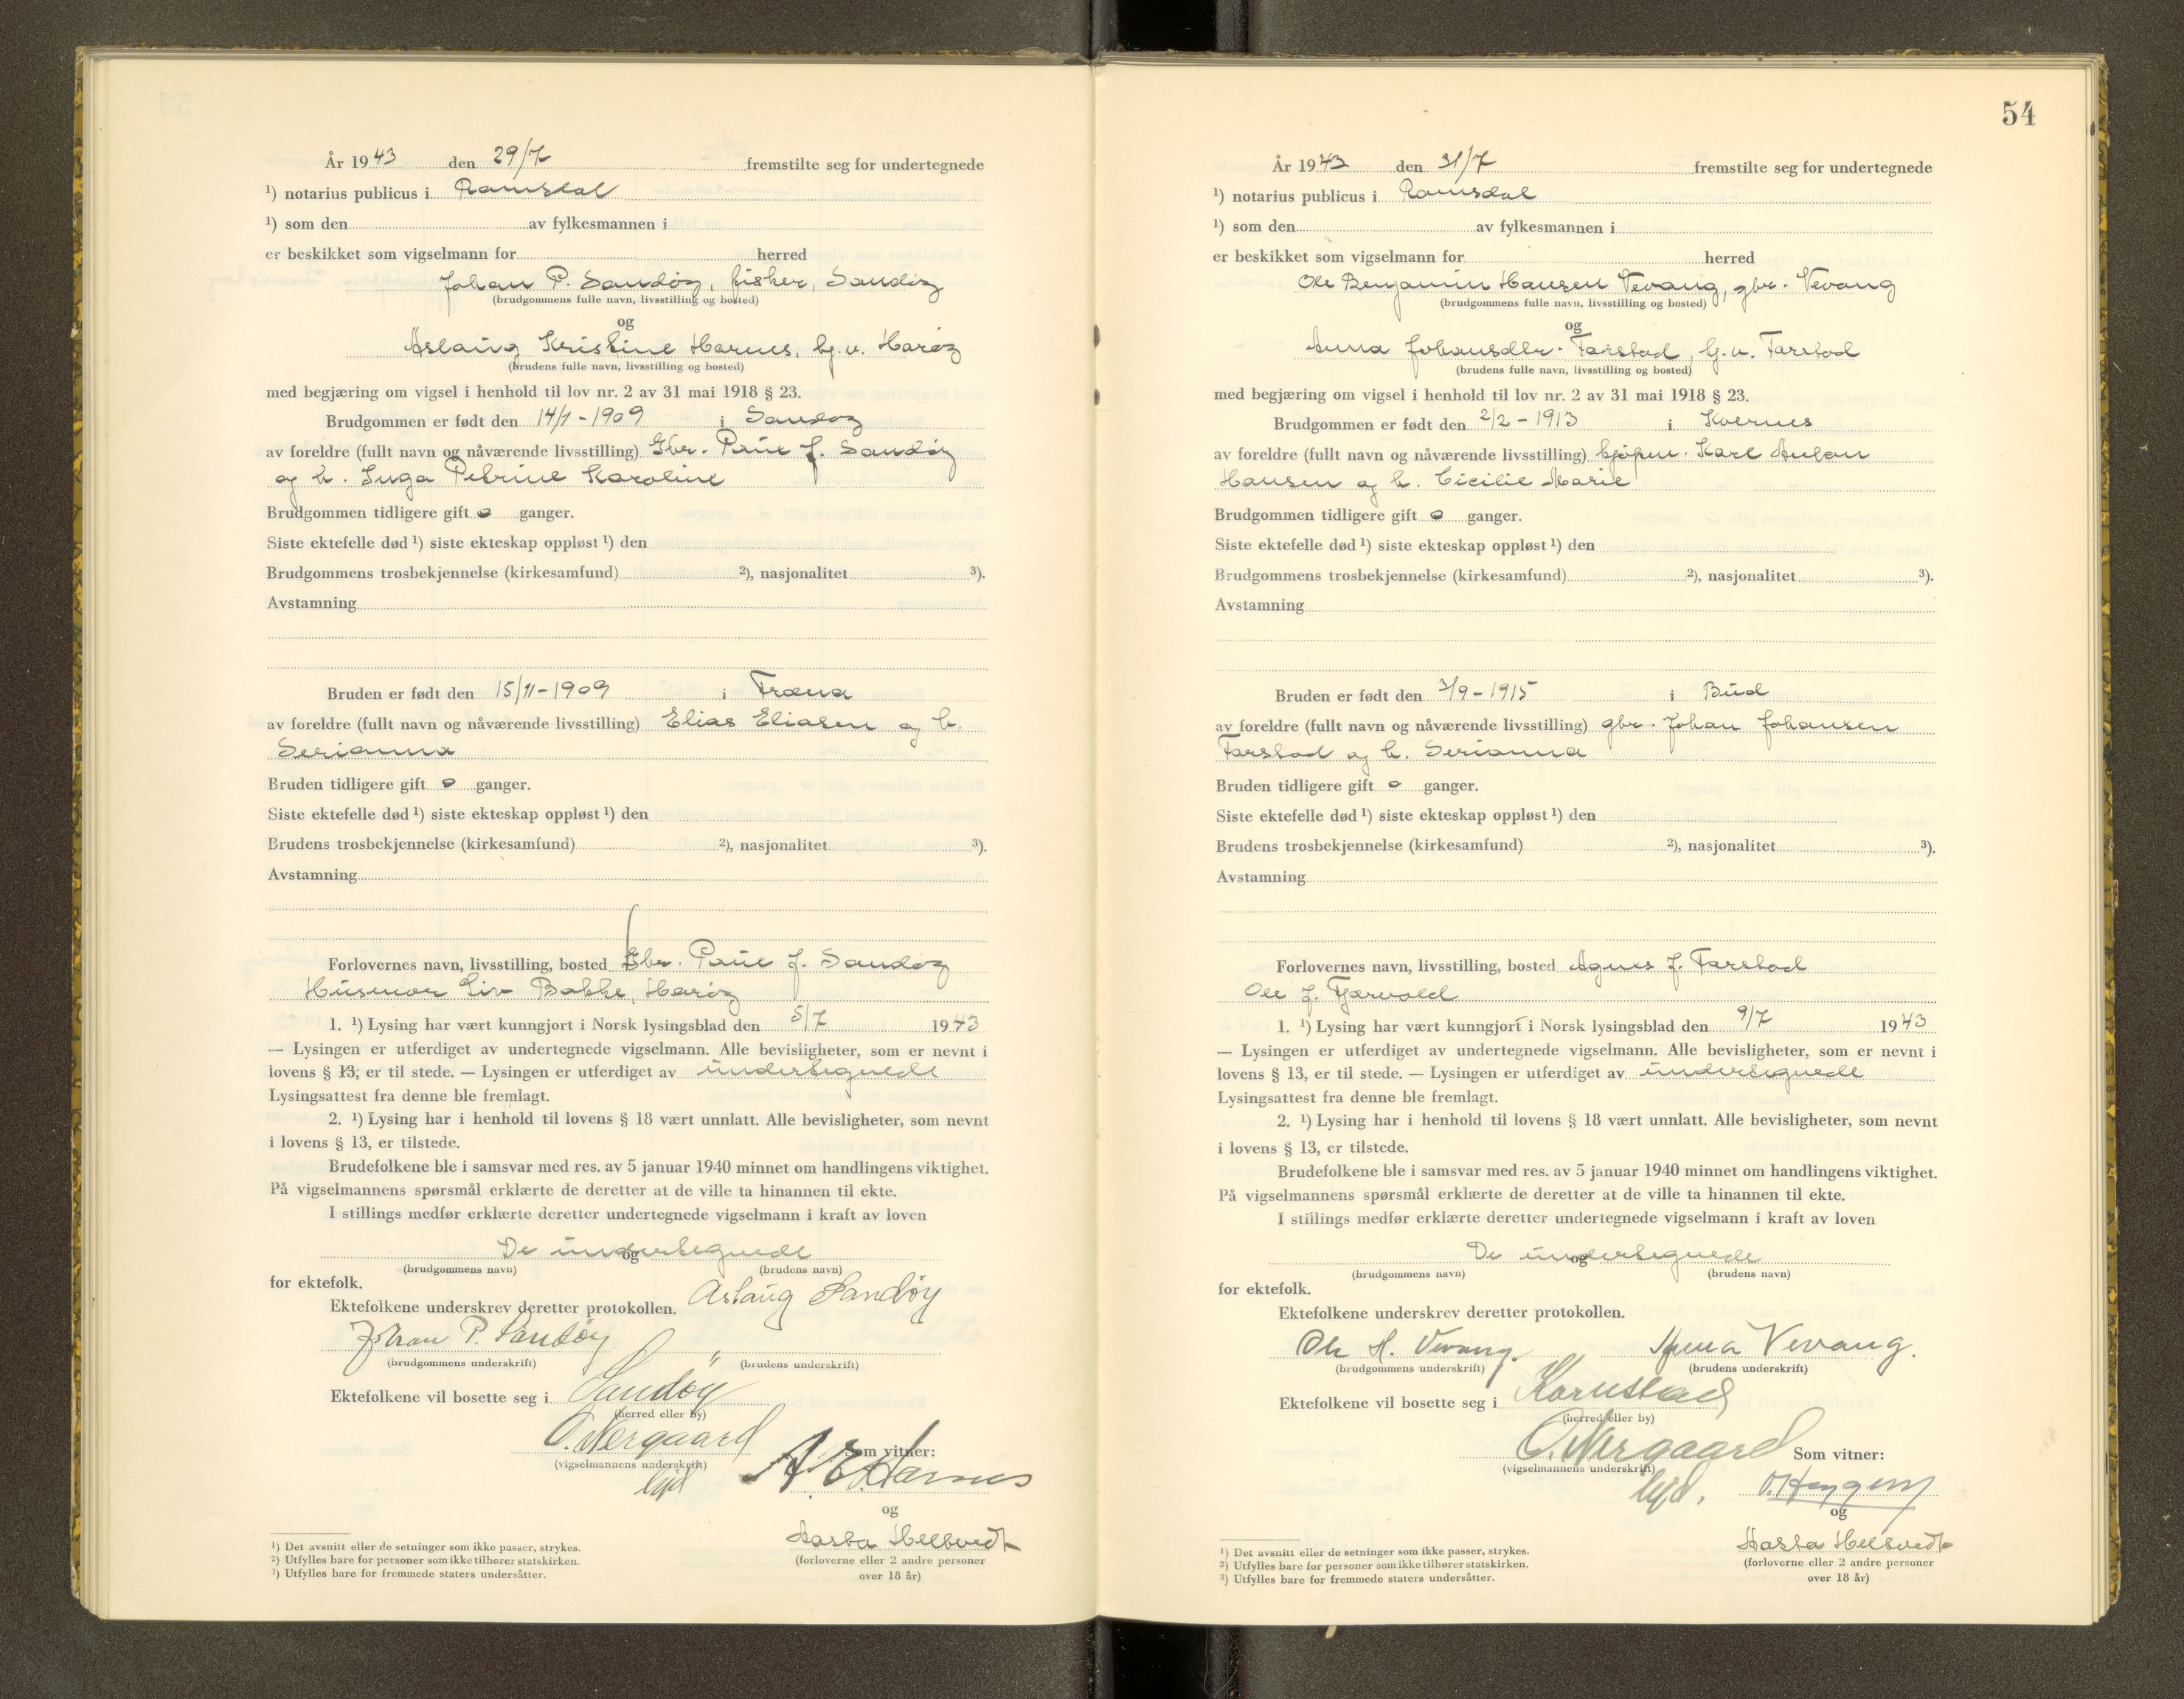 År 1943 den 29/7 fremstilte seg for undertegnede
¹) notarius publicus i Romsdal
¹) som den av fylkesmannen i
er beskikket som vigselmann for herred
Johan P. Sandøy, fisker, Sandøy
(brudgommens fulle navn, livsstilling og bosted)
og
Aslaug Kristine Harnes, hj.v. Harøy
(brudens fulle navn, livsstilling og bosted)
med begjæring om vigsel i henhold til lov nr. 2 av 31 mai 1918 § 23.
Brudgommen er født den 14/1 - 1909 i Sandøy
av foreldre (fullt navn og nåværende livsstilling) Gbr. Paul J. Sandøy
og h. Inga Petrine Karoline
Brudgommen tidligere gift 0 ganger.
Siste ektefelle død ¹) siste ekteskap oppløst ¹) den
Brudgommens trosbekjennelse (kirkesamfund) ²), nasjonalitet ³).
Avstamning
Bruden er født den 15/11 - 1909 i Fræna
av foreldre (fullt navn og nåværende livsstilling) Elias Eliasen og h.
Serianna
Bruden tidligere gift 0 ganger.
Siste ektefelle død ¹) siste ekteskap oppløst ¹) den
Brudens trosbekjennelse (kirkesamfund) ²), nasjonalitet ³).
Avstamning
Forlovernes navn, livsstilling, bosted Gbr. Paul J. Sandøy
Husmor Liv Bakke, Harøy
1. ¹) Lysing har vært kunngjort i Norsk lysingsblad den 5/7 1943
— Lysingen er utferdiget av undertegnede vigselmann. Alle bevisligheter, som er nevnt i
lovens § 13, er til stede. — Lysingen er utferdiget av undertegnede
Lysingsattest fra denne ble fremlagt.
2. ¹) Lysing har i henhold til lovens § 18 vært unnlatt. Alle bevisligheter, som nevnt
i lovens § 13, er tilstede.
Brudefolkene ble i samsvar med res. av 5 januar 1940 minnet om handlingens viktighet.
På vigselmannens spørsmål erklærte de deretter at de ville ta hinannen til ekte.
I stillings medfør erklærte deretter undertegnede vigselmann i kraft av loven
De undertegnede
og
(brudgommens navn) (brudens navn)
for ektefolk.
Ektefolkene underskrev deretter protokollen. Aslaug Sandøy
Johan P. Sandøy "
(brudgommens underskrift) (brudens underskrift)
Ektefolkene vil bosette seg i Sandøy
(herred eller by)
O. Nergaard Som vitner:
(vigselmannens underskrift) A. E. Harnes
og
Aasta Hellsvedt
(forloverne eller 2 andre personer
over 18 år)
¹) Det avsnitt eller de setninger som ikke passer, strykes.
²) Utfylles bare for personer som ikke tilhører statskirken.
³) Utfylles bare for fremmede staters undersåtter.
54
År 1943 den 31/7 fremstilte seg for undertegnede
¹) notarius publicus i Romsdal
¹) som den av fylkesmannen i
er beskikket som vigselmann for herred
Ole Benjamin Hansen Vevang, gbr. Vevang
(brudgommens fulle navn, livsstilling og bosted)
og
Anna Johansdtr. Farstad, hj.v. Farstad
(brudens fulle navn, livsstilling og bosted)
med begjæring om vigsel i henhold til lov nr. 2 av 31 mai 1918 § 23.
Brudgommen er født den 2/2 - 1913 i Kvernes
av foreldre (fullt navn og nåværende livsstilling) kjøpm. Karl Anton
Hansen og h. Cicilie Marie
Brudgommen tidligere gift 0 ganger.
Siste ektefelle død ¹) siste ekteskap oppløst ¹) den
Brudgommens trosbekjennelse (kirkesamfund) ²), nasjonalitet ³).
Avstamning
Bruden er født den 3/9 - 1915 i Bud
av foreldre (fullt navn og nåværende livsstilling) gbr. Johan Johansen
Farstad og h. Serianna
Bruden tidligere gift 0 ganger.
Siste ektefelle død ¹) siste ekteskap oppløst ¹) den
Brudens trosbekjennelse (kirkesamfund) ²), nasjonalitet ³).
Avstamning
Forlovernes navn, livsstilling, bosted Agnes J. Farstad
Ole J.
1. ¹) Lysing har vært kunngjort i Norsk lysingsblad den 9/7 1943
— Lysingen er utferdiget av undertegnede vigselmann. Alle bevisligheter, som er nevnt i
lovens § 13, er til stede. — Lysingen er utferdiget av undertegnede
Lysingsattest fra denne ble fremlagt.
2. ¹) Lysing har i henhold til lovens § 18 vært unnlatt. Alle bevisligheter, som nevnt
i lovens § 13, er tilstede.
Brudefolkene ble i samsvar med res. av 5 januar 1940 minnet om handlingens viktighet.
På vigselmannens spørsmål erklærte de deretter at de ville ta hinannen til ekte.
I stillings medfør erklærte deretter undertegnede vigselmann i kraft av loven
De undertegnede
og
(brudgommens navn) (brudens navn)
for ektefolk.
Ektefolkene underskrev deretter protokollen.
Ole H. Vevang. Anna Vevang.
(brudgommens underskrift) (brudens underskrift)
Ektefolkene vil bosette seg i Kornstad
(herred eller by)
O. Nergaard Som vitner:
(vigselmannens underskrift)
og
Aasta Hellsvedt
(forloverne eller 2 andre personer
over 18 år)
¹) Det avsnitt eller de setninger som ikke passer, strykes.
²) Utfylles bare for personer som ikke tilhører statskirken.
³) Utfylles bare for fremmede staters undersåtter.